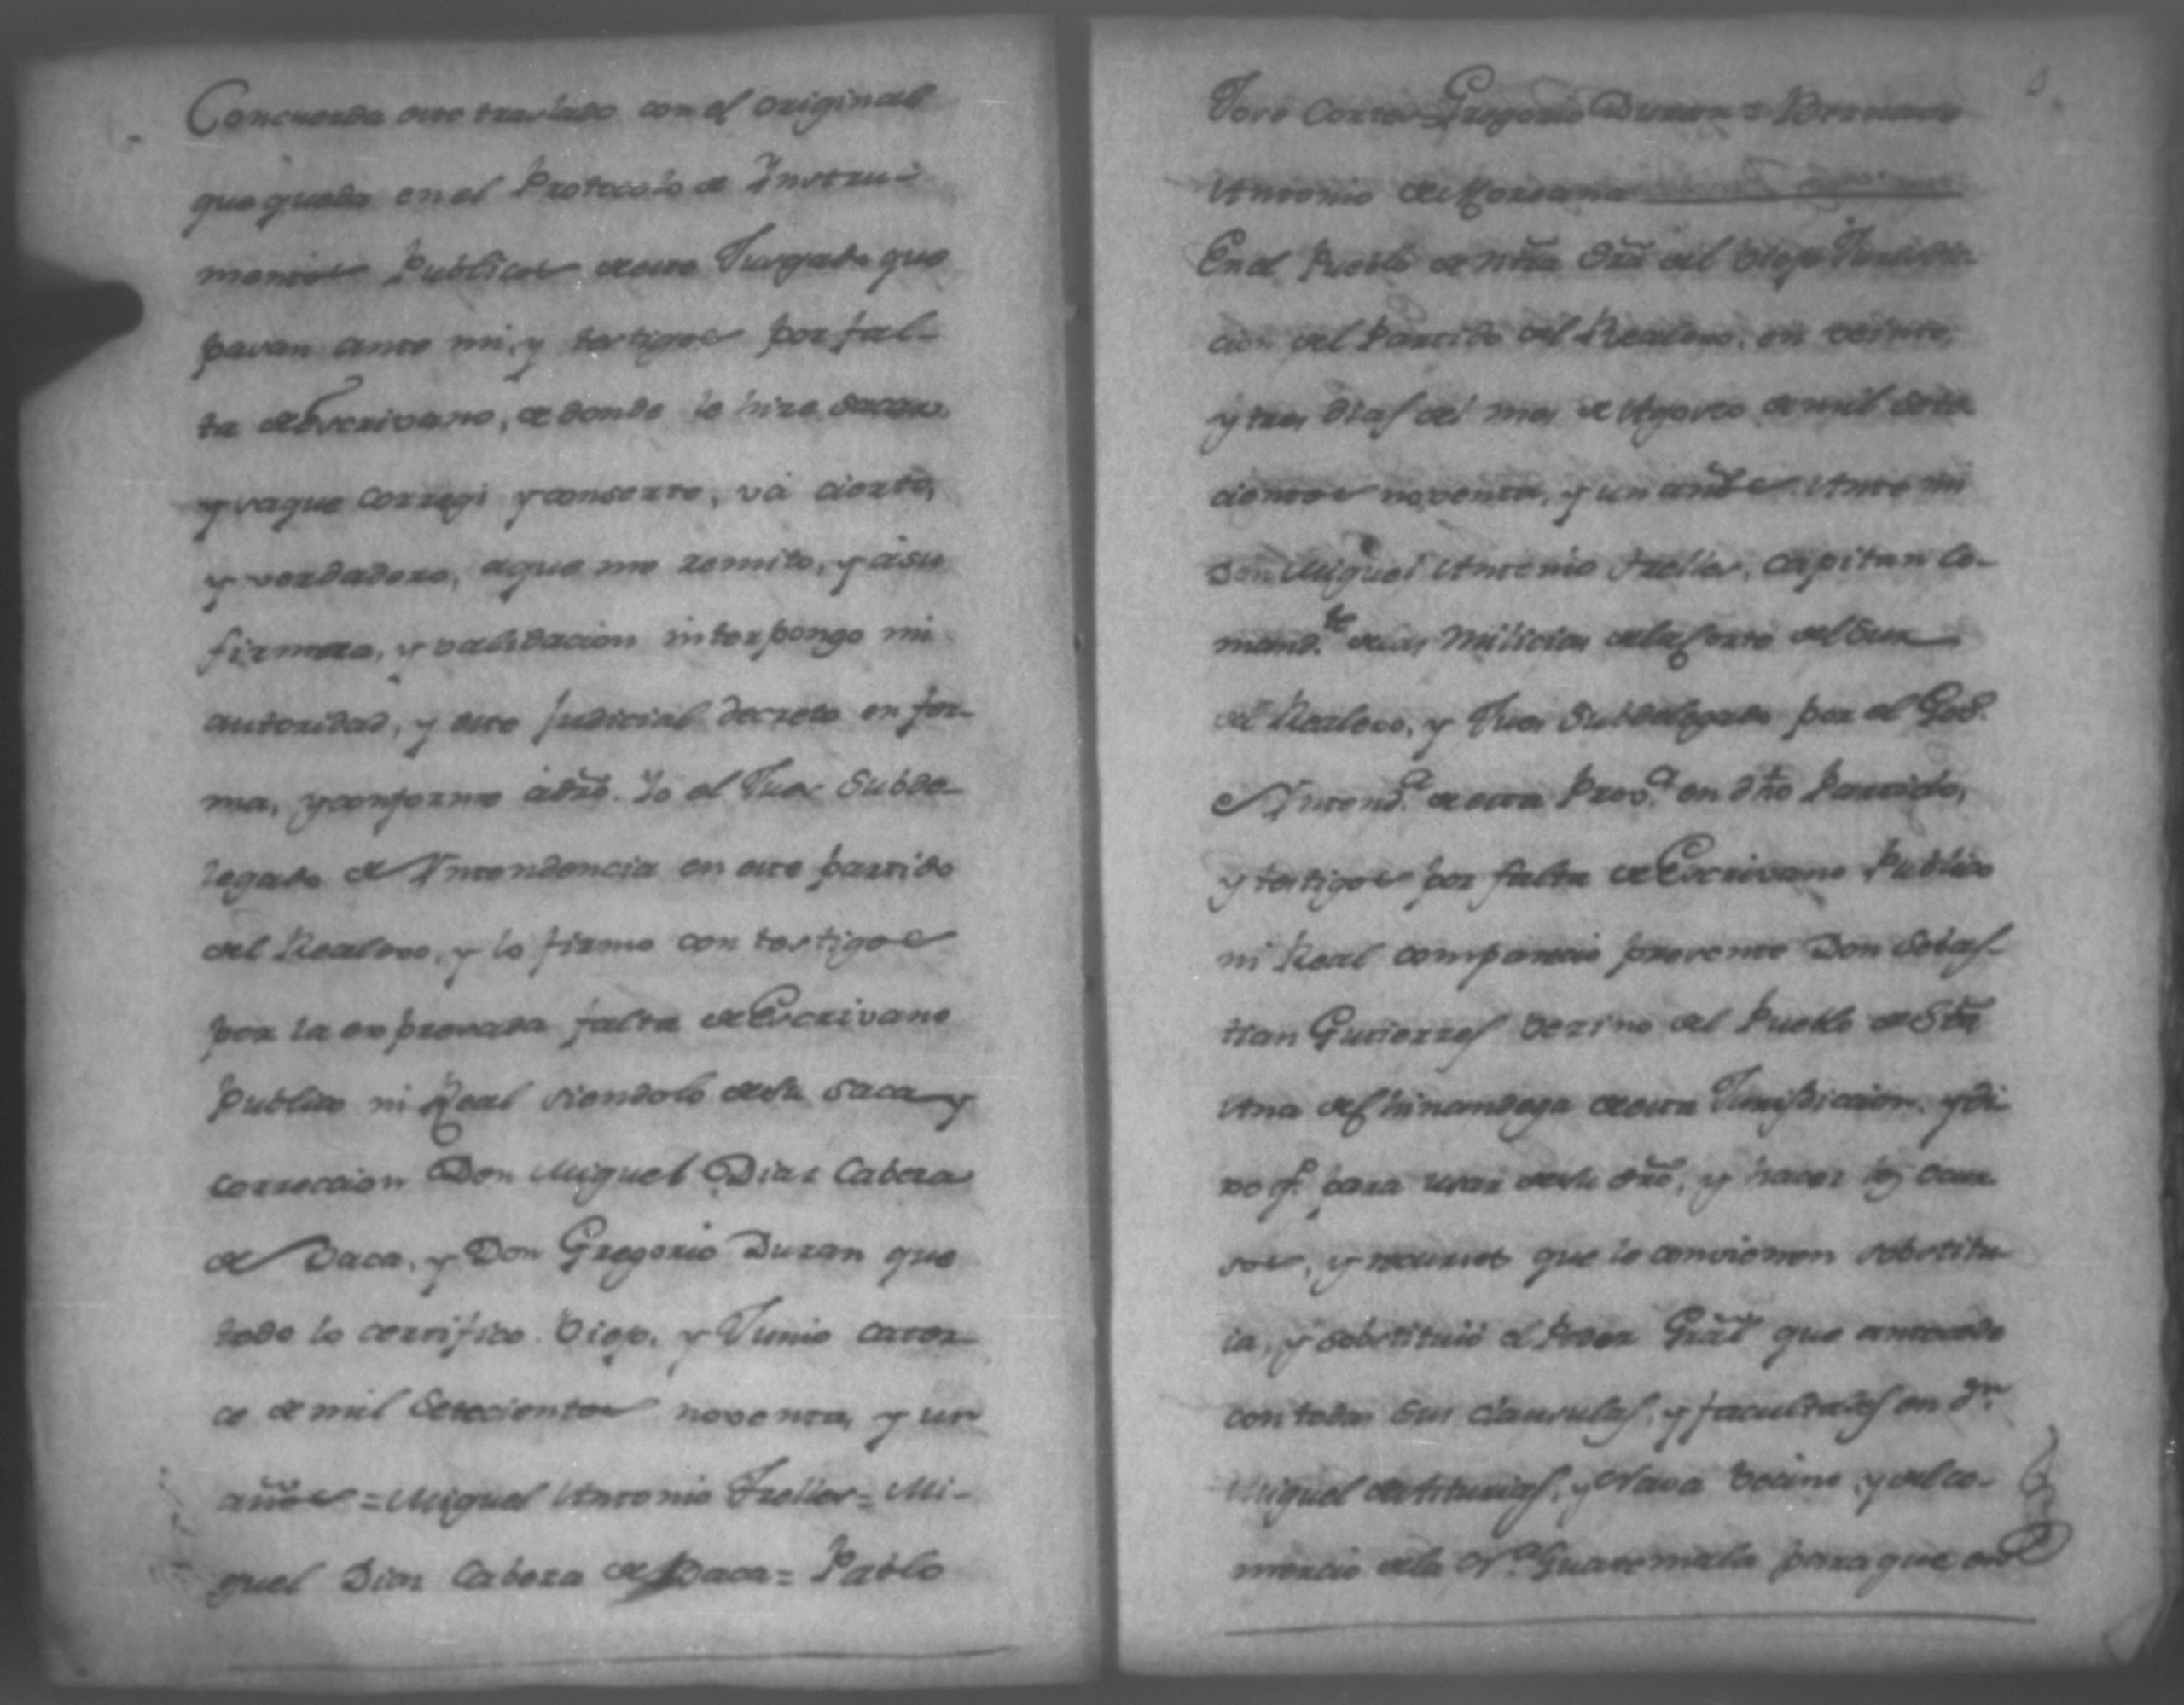 Concuerda este traslado con el original
que queda en el Protocolo de Instru-
mentos Publicos de este Jusgado que
pasan ante mi, y testigos por fal-
ta de Escrivano, de donde le hize sacar
y va que corregi y conserte, vá cierto,
y verdadero, a que me remito, y á su
firmeza, y validacion interpongo mi
autoridad, y este judicial decreto en for-
ma, y conforme á dro. Yo el Juez Subde-
legado de Yntendencia en este partido
del Realexo, y lo firmo con testigos
por la expresada falta de Escrivano
Publico ni Real siendolo de su saca y
correccion Don Miguel Dias Cabeza
de Vaca, y Don Gregorio Duran que
todo lo certifico. Viejo, y Junio cator-
ce de mil Setecientos noventa, y un
años = Miguel Antonio Freller = Mi-
guel Dias Cabeza de Vaca = Pablo
José Cortes = Gregorio Duran =
Antonio de
En el Pueblo de Ntra Sra del Viejo Jurisdic-
cion del Partido del Realexo, en veinte,
y tres dias del mes de Agosto de mil sete
cientos noventa, y un años. Ante mi
Don Miguel Antonio Freller, Capitan Co-
mand.te de las Milicias de la Costa del Sur
del Realexo, y Juez Subdelegado por el Gov.
e Yntend.a de esta Prov.a en dho Partido,
y testigos por falta de Escrivano Publico
ni Real comparecio presente Don Sebas-
tian Gutierres Vezino del Pueblo de Sta
Ana de Chinandega de esta Jurisdiccion, y di
xo q.e para usar de su dro, y hacer los ocur
sos, y recursos que le convienen sobstitu
ia, y sobstituió el Poder Gral que antecede
con todas sus clausulas, y facultades en Dn
Miguel de Asturias, y Nava Vecino, y del co-
mercio de la N.a Guatemala para que en